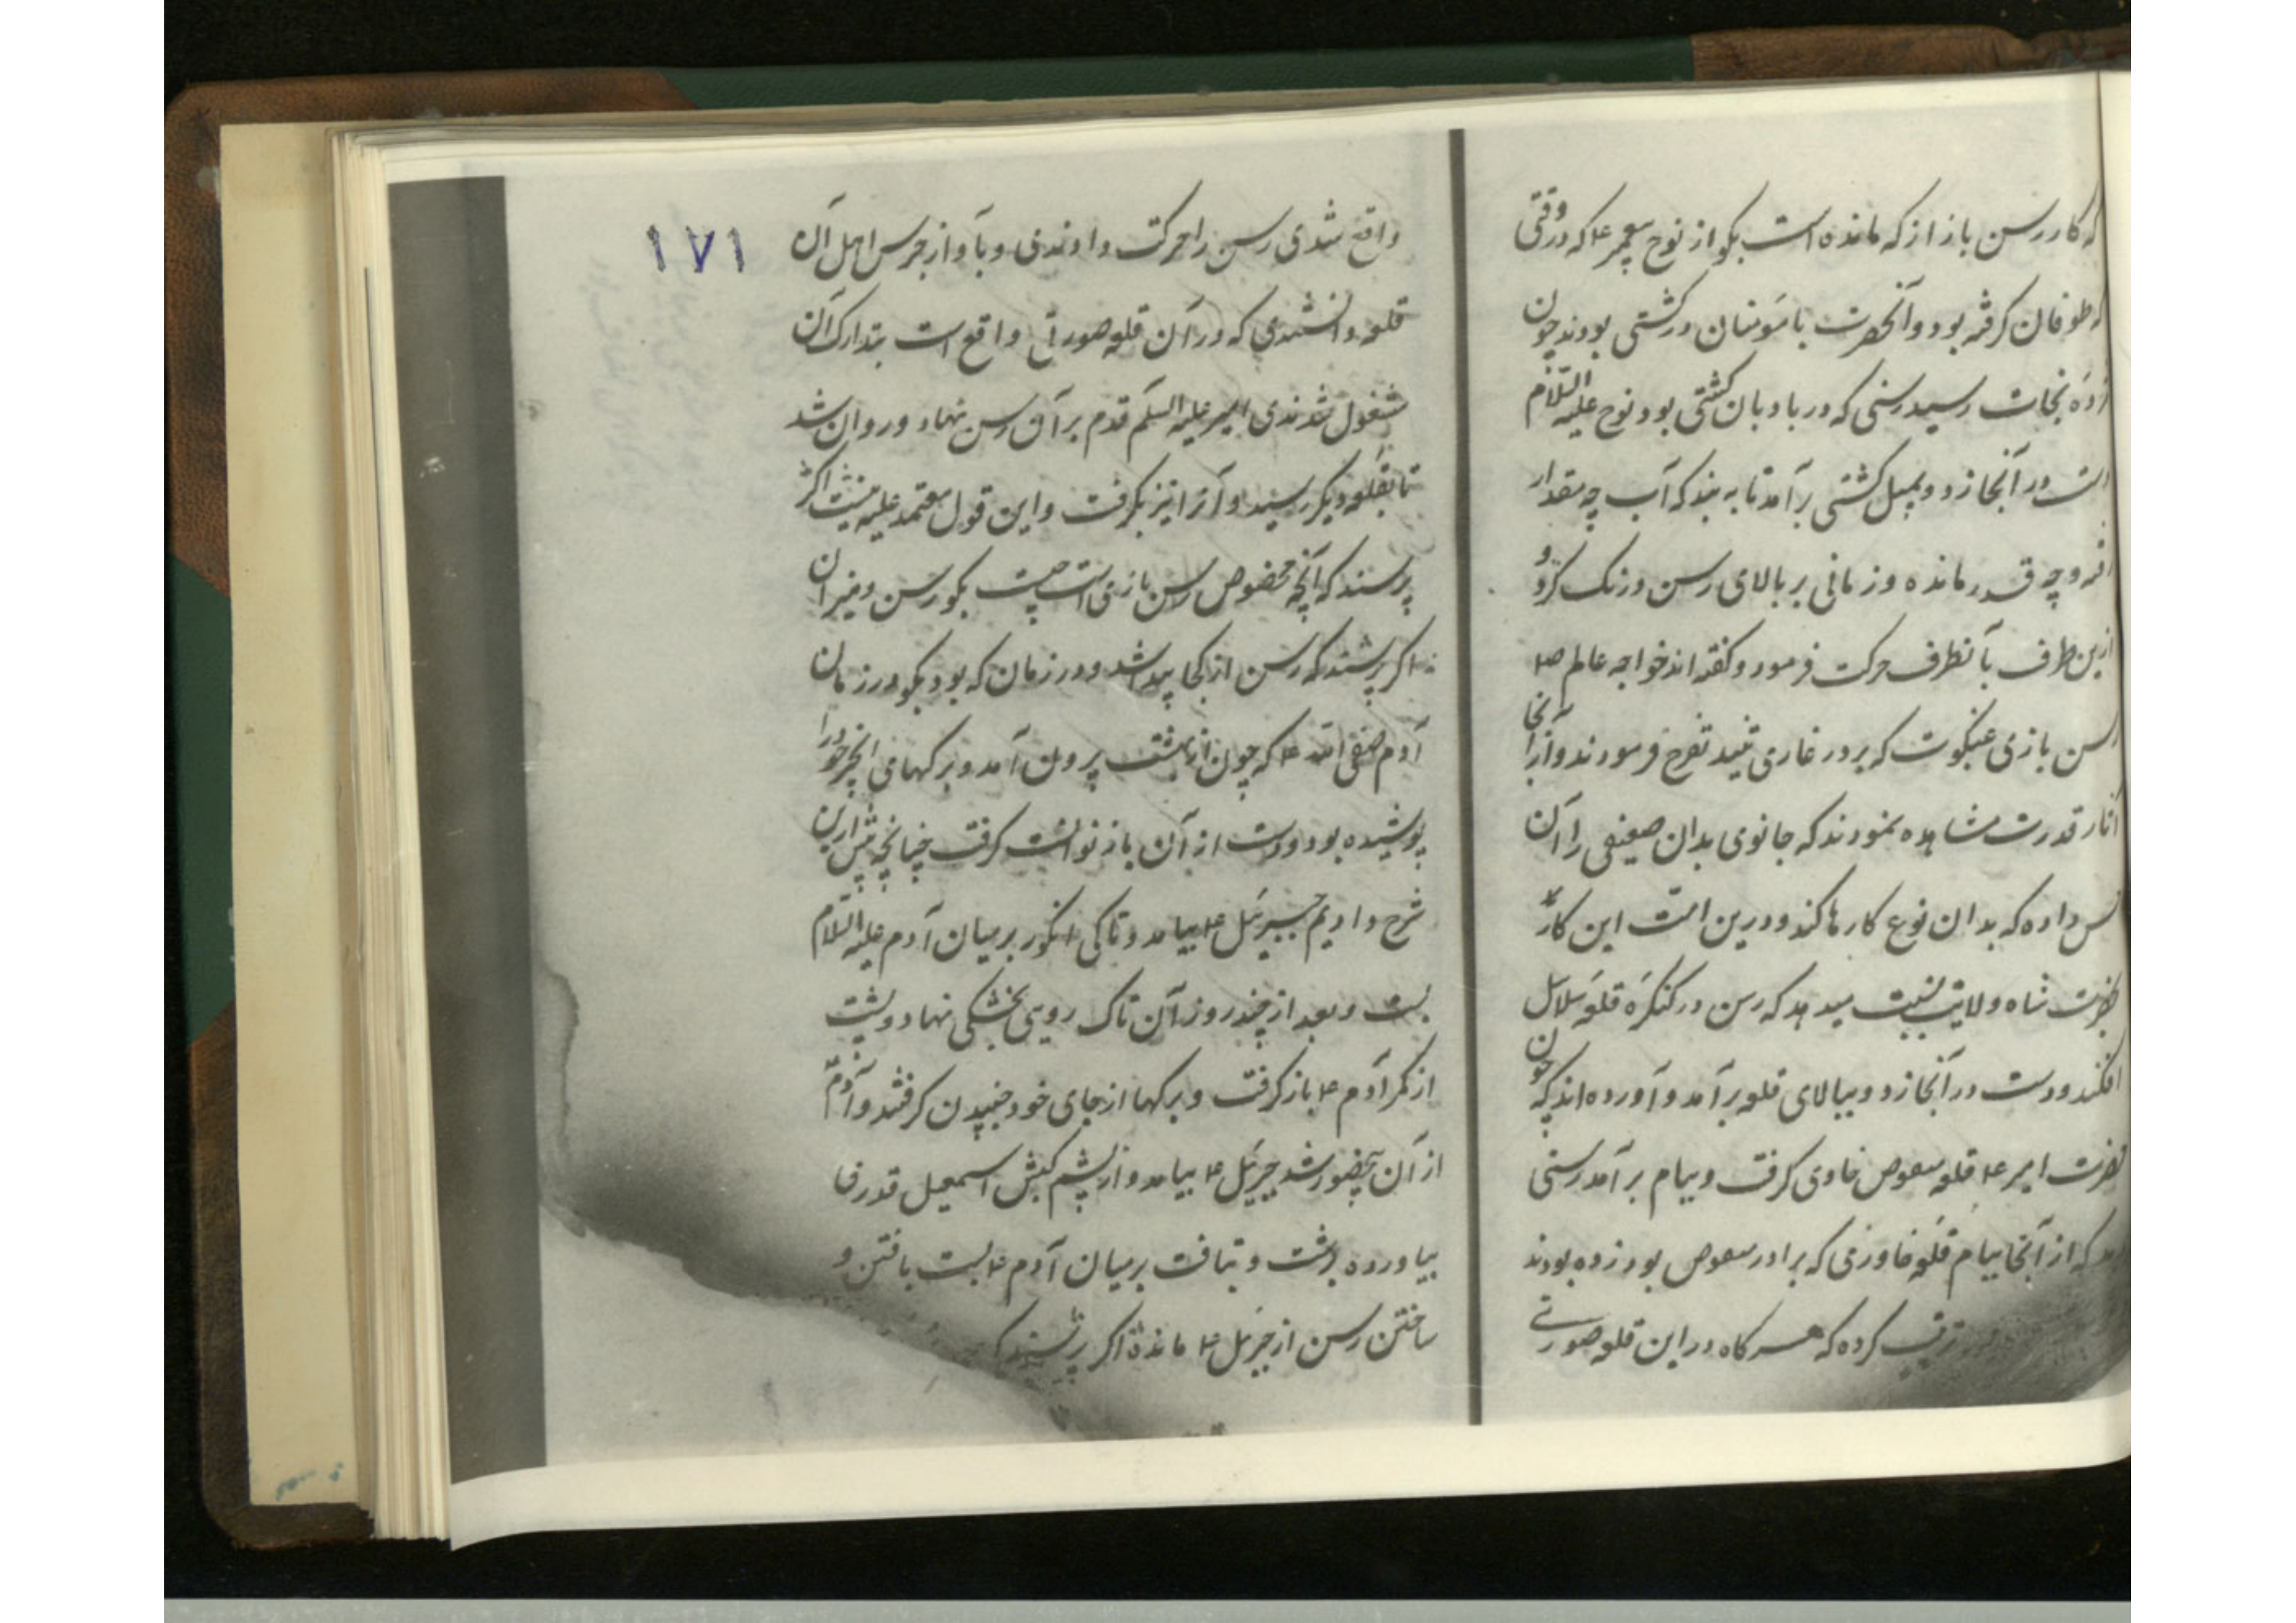 که کار رسن باز از که مانده است بکو از نوح پیغمبر ع که در وقتی
که طوفان کرفته بود و آنحضرت با مؤمنان در کشتی بودند چون
نجات رسید رسنی که در بادبان کشتی بود نوح علیه السّلام
دست در آنجا زد و بمیل کشتی برآمد تا به بیند که آب چه مقدار
و چه قدر مانده و زمانی بر بالای رسن درنک کرد و
ازین طرف بآنطرف حرکت فرمود و کفته اند خواجه عالم ص
رسن بازی عنکبوت که بر در غار می تنید تفرج فرمودند و از آنجا
آثار قدرت مشاهده نمودند که جانوری بدان ضعیفی را آن
داده که بدان نوع کارها کند و درین امت این کار
حضرت شاه ولایت نسبت میدهد که رسن در کنکرهٔ قلعهٔ سلاسل
افکند و دست در آنجا زد و ببالای قلعه برآمد و آورده اند که چون
حضرت امیر ع قلعه معوص خاوری کرفت و ببام برآمد رسنی
که از آنجا ببام قلعهٔ خاوری که برادر معوص بود زده بودند
کرده که هر کاه در این قلعه صورتی
۱۷۱
واقع شدی رسن را حرکت دادندی و بآواز جرس اهل آن
قلعه دانستندی که در آن قلعه صورتی واقع است بتدارک آن
مشغول شدندی امیر علیه السلم قدم بر آن رسن نهاد و روان شد
تا بقلعه دیکر رسید و آنرا نیز بکرفت و این قول معتمد علیه نیست اکر
پرسند که آنچه مخصوص رسن بازی است چیست بکو رسن و میزان
اکر پرسند که رسن از کجا پیدا شد و در زمان که بود بکو در زمان
آدم صفی الله ع که چون از بهشت بیرون آمد و برکهای انجیر خود را
پوشیده بود و دست از آن باز نتوانست کرفت چنانچه پیش ازین
شرح دادیم جبرئیل ع بیامد و تاکی انکور بر میان آدم علیه السّلام
بست و بعد از چند روز آن تاک روی بخشکی نهاد و پشت
از کمر آدم ع باز کرفت و برکها از جای خود جنبیدن کرفتند و آدم
از آن بحضور شد جبرئیل ع بیامد و از پشم کبش اسمعیل قدری
بیاورده برشت و بتافت بر میان آدم ع بست بافتن و
ساختن رسن از جبرئیل ع مانده اکر پرسند که